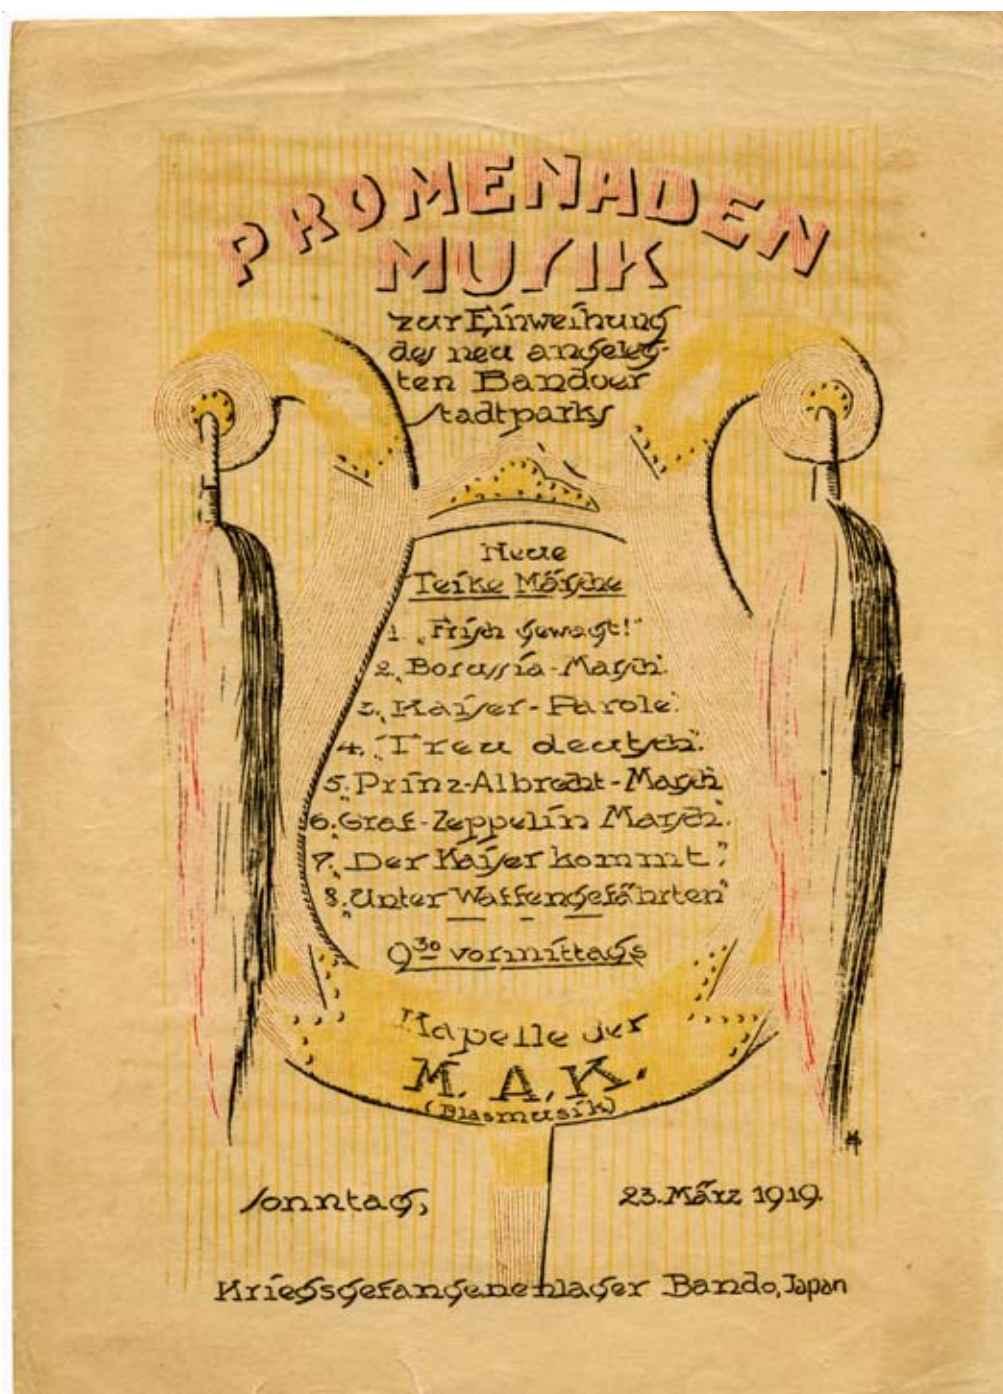 PROMENADEN
MUSIK
zur Einweihung
des neu angeleg-
ten Bandoer
Stadtparks
Neue
Teike Märsche
1. „Frisch gewagt!"
2. „Borussia-Marsch"
3. „Kaiser-Parole"
4. „Treu deutsch"
5. „Prinz-Albrecht-Marsch
6. „Graf-Zeppelin Marsch"
7. „Der Kaiser kommt"
8. „Unter Waffengefährten"
9³⁰ vormittags
Kapelle der
M. A. K.
(Blasmusik)
Sonntag, 23. März 1919.
Kriegsgefangenenlager Bando, Japan